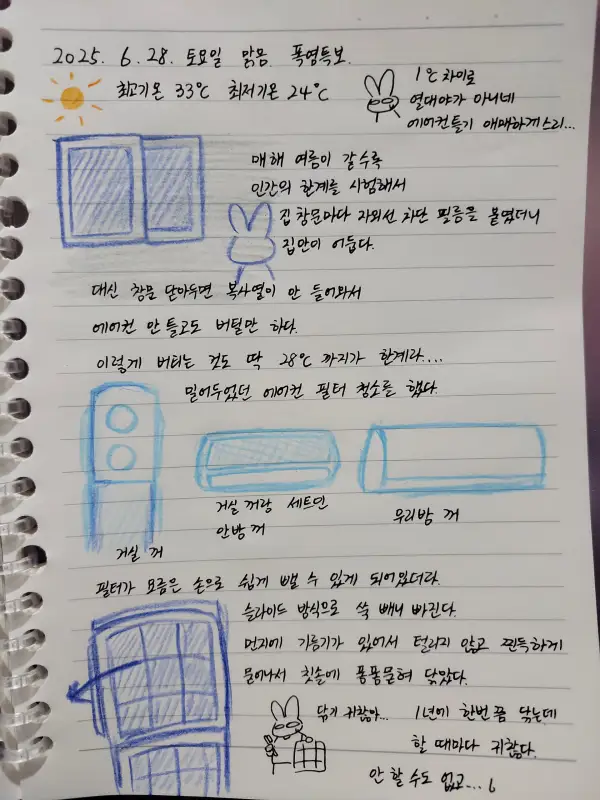 2025. 6. 28. 토요일 맑음. 폭염특보.
최고기온 33℃ 최저기온 24℃
1℃ 차이로
열대야가 아니네
에어컨틀기 애매하게스리...
매해 여름이 갈수록
인간의 한계를 시험해서
집 창문마다 자외선 차단 필름을 붙였더니
집안이 어둡다.
대신 창문 닫아두면 복사열이 안 들어와서
에어컨 안 틀고도 버틸만 하다.
이렇게 버티는 것도 딱 28℃ 까지가 한계라....
밀어두었던 에어컨 필터 청소를 했다.
거실 꺼랑 세트인
안방 꺼
우리방 꺼
거실 꺼
필터가 요즘은 손으로 쉽게 뺄 수 있게 되어있더라.
슬라이드 방식으로 쑥 빼니 빠진다.
먼지에 기름기가 있어서 털리지 않고 찐득하게
묻어나서 칫솔에 퐁퐁묻혀 닦았다.
닦기 귀찮아...
1년에 한번 쯤 닦는데
할 때마다 귀찮다.
안 할 수도 없고...